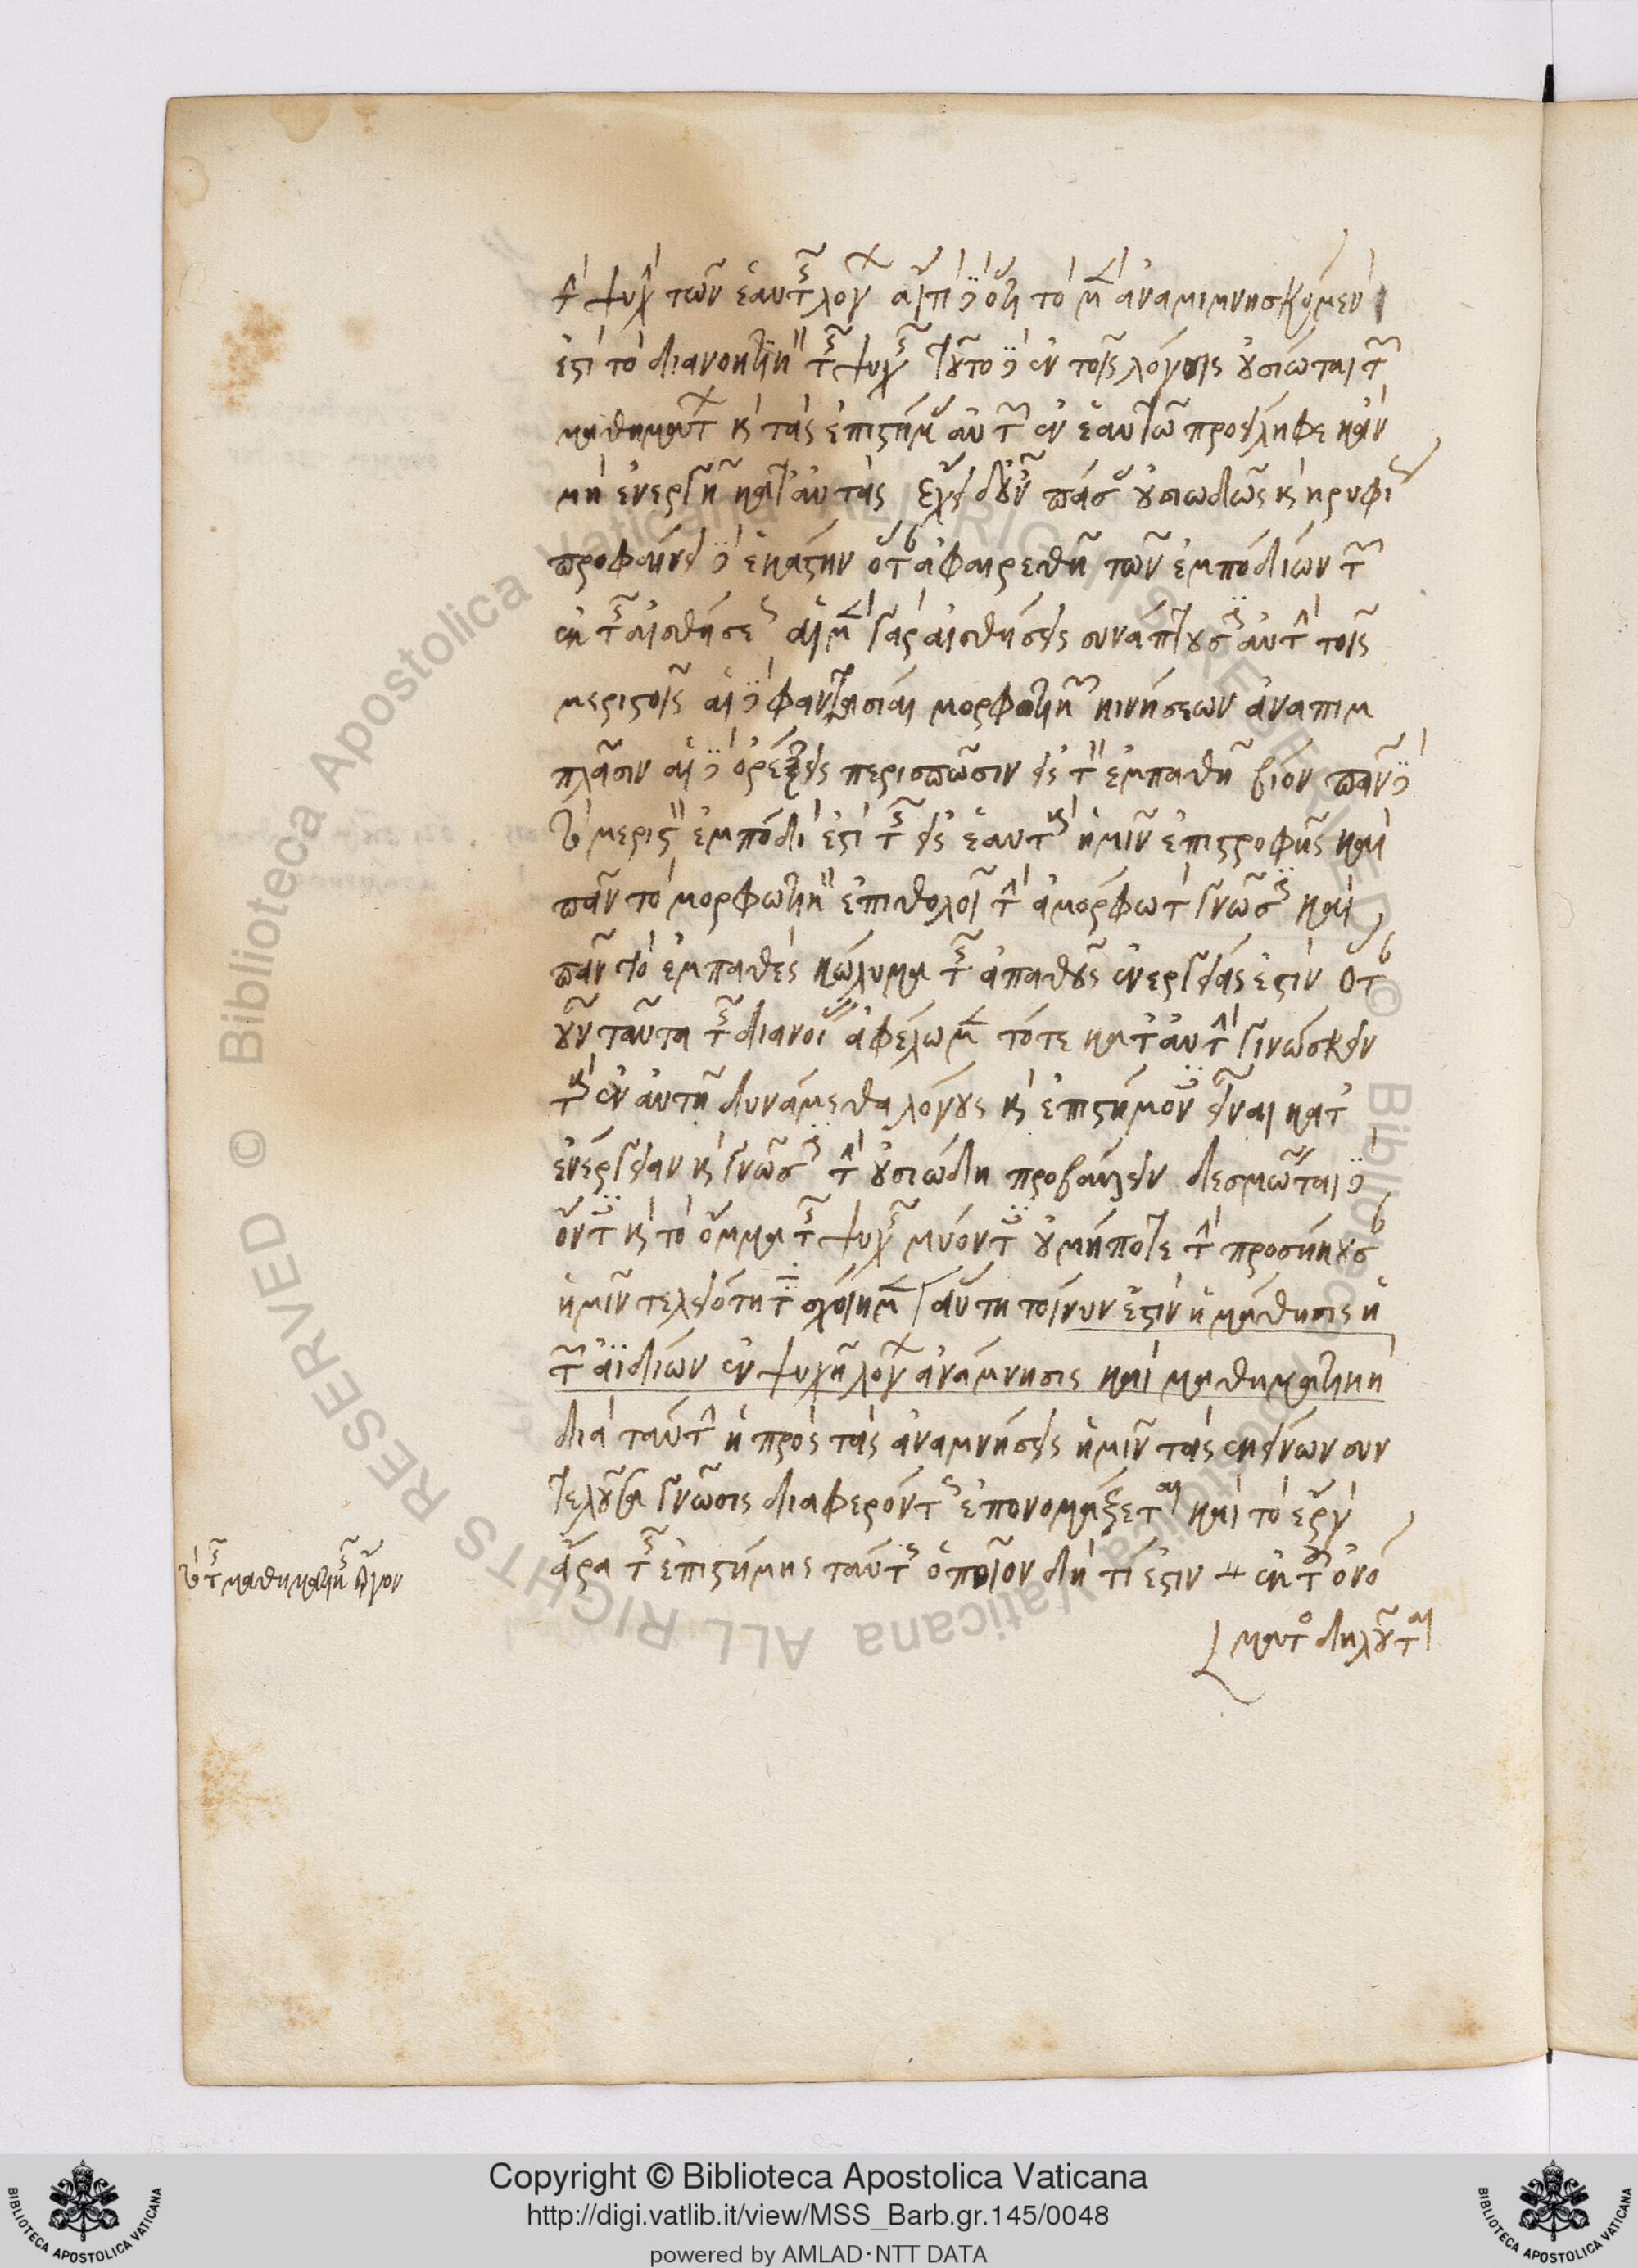 τὴν ψυχὴν τῶν ἑαυτῆς λόγων αἴτιον δὲ ὅτι τὸ μὲν ἀναμιμνησκόμενον
ἐστὶ τὸ διανοητικὸν τῆς ψυχῆς τοῦτο δὲ ἐν τοῖς λόγοις οὐσίωται τῶν
μαθημάτων καὶ τὰς ἐπιστήμας αὐτῶν ἐν ἑαυτῷ προείληφε κἂν
μὴ ἐνεργῇ κατ' αὐτάς ἔχει δ' οὖν πάσας οὐσιωδῶς καὶ κρυφίως
προφαίνει δὲ ἑκάστην ὅταν ἀφαιρεθῇ τῶν ἐμποδίων τῶν
ἐκ τῆς αἰσθήσεως αἱ μὲν γὰρ αἰσθήσεις συνάπτουσιν αὐτὴν τοῖς
μεριστοῖς αἱ δὲ φαντασίαι μορφωτικῶν κινήσεων ἀναπιμ
πλᾶσιν αἱ δὲ ὀρέξεις περισπῶσιν εἰς τὸν ἐμπαθῆ βίον πᾶν δὲ
τὸ μεριστὸν ἐμπόδιόν ἐστι τῆς εἰς ἑαυτοὺς ἡμῖν ἐπιστροφῆς καὶ
πᾶν τὸ μορφωτικὸν ἐπιθολοῖ τὴν ἀμόρφωτον γνῶσιν καὶ
πᾶν τὸ ἐμπαθὲς κώλυμα τῆς ἀπαθοῦς ἐνεργείας ἐστίν Ὅταν
οὖν ταῦτα τῆς διανοίας ἀφέλωμεν τότε κατ' αὐτὴν γινώσκειν
τοὺς ἐν αὐτῇ δυνάμεθα λόγους καὶ ἐπιστήμονες εἶναι κατ'
ἐνέργειαν καὶ γνῶσιν τὴν οὐσιώδη προβάλλειν δεσμῶται δὲ
ὄντες καὶ τὸ ὄμμα τῆς ψυχῆς μύοντες οὐ μήποτε τὴν προσήκουσαν
ἡμῖν τελειότητα σχοίημεν αὕτη τοίνυν ἐστὶν ἡ μάθησις ἡ
τῶν ἀϊδίων ἐν ψυχῇ λόγων ἀνάμνησις καὶ μαθηματικὴ
διὰ ταύτην ἡ πρὸς τὰς ἀναμνήσεις ἡμῖν τὰς ἐκείνων συν
τελοῦσα γνῶσις διαφερόντως ἐπονομάζεται καὶ τὸ ἔργον
ἄρα τῆς ἐπιστήμης ταύτης ὁποῖον δή τί ἐστιν ἐκ τοῦ ὀνό
ματος δηλοῦται
τὸ τῆς μαθηματικῆς ἔργον